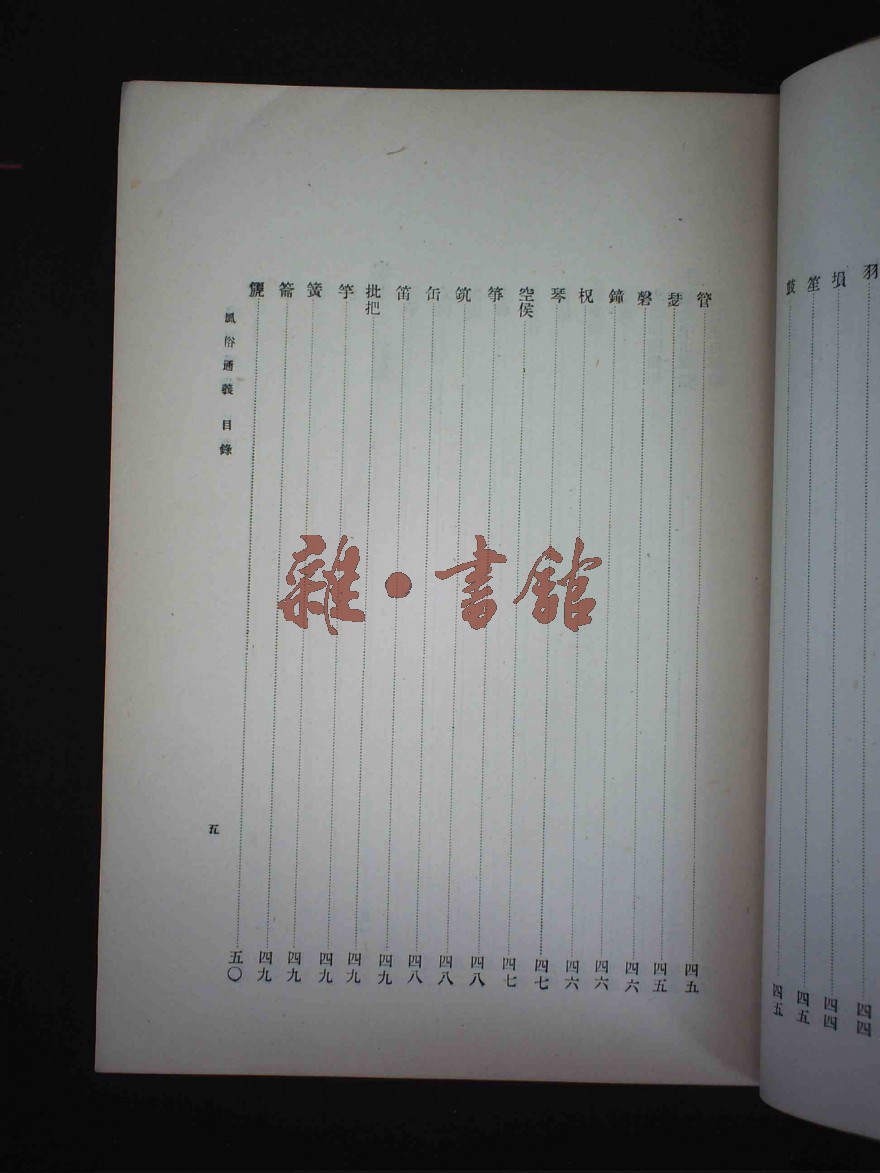 羽 四四
塤 四四
笙 四五
鼓 四五
管 四五
瑟 四五
磬 四六
鐘 四六
柷 四六
琴 四七
空侯 四七
箏 四八
筑 四八
缶 四八
笛 四九
批把 四九
竽 四九
簧 四九
籥 四九
五〇
風俗通義 目錄
五
雜·書館